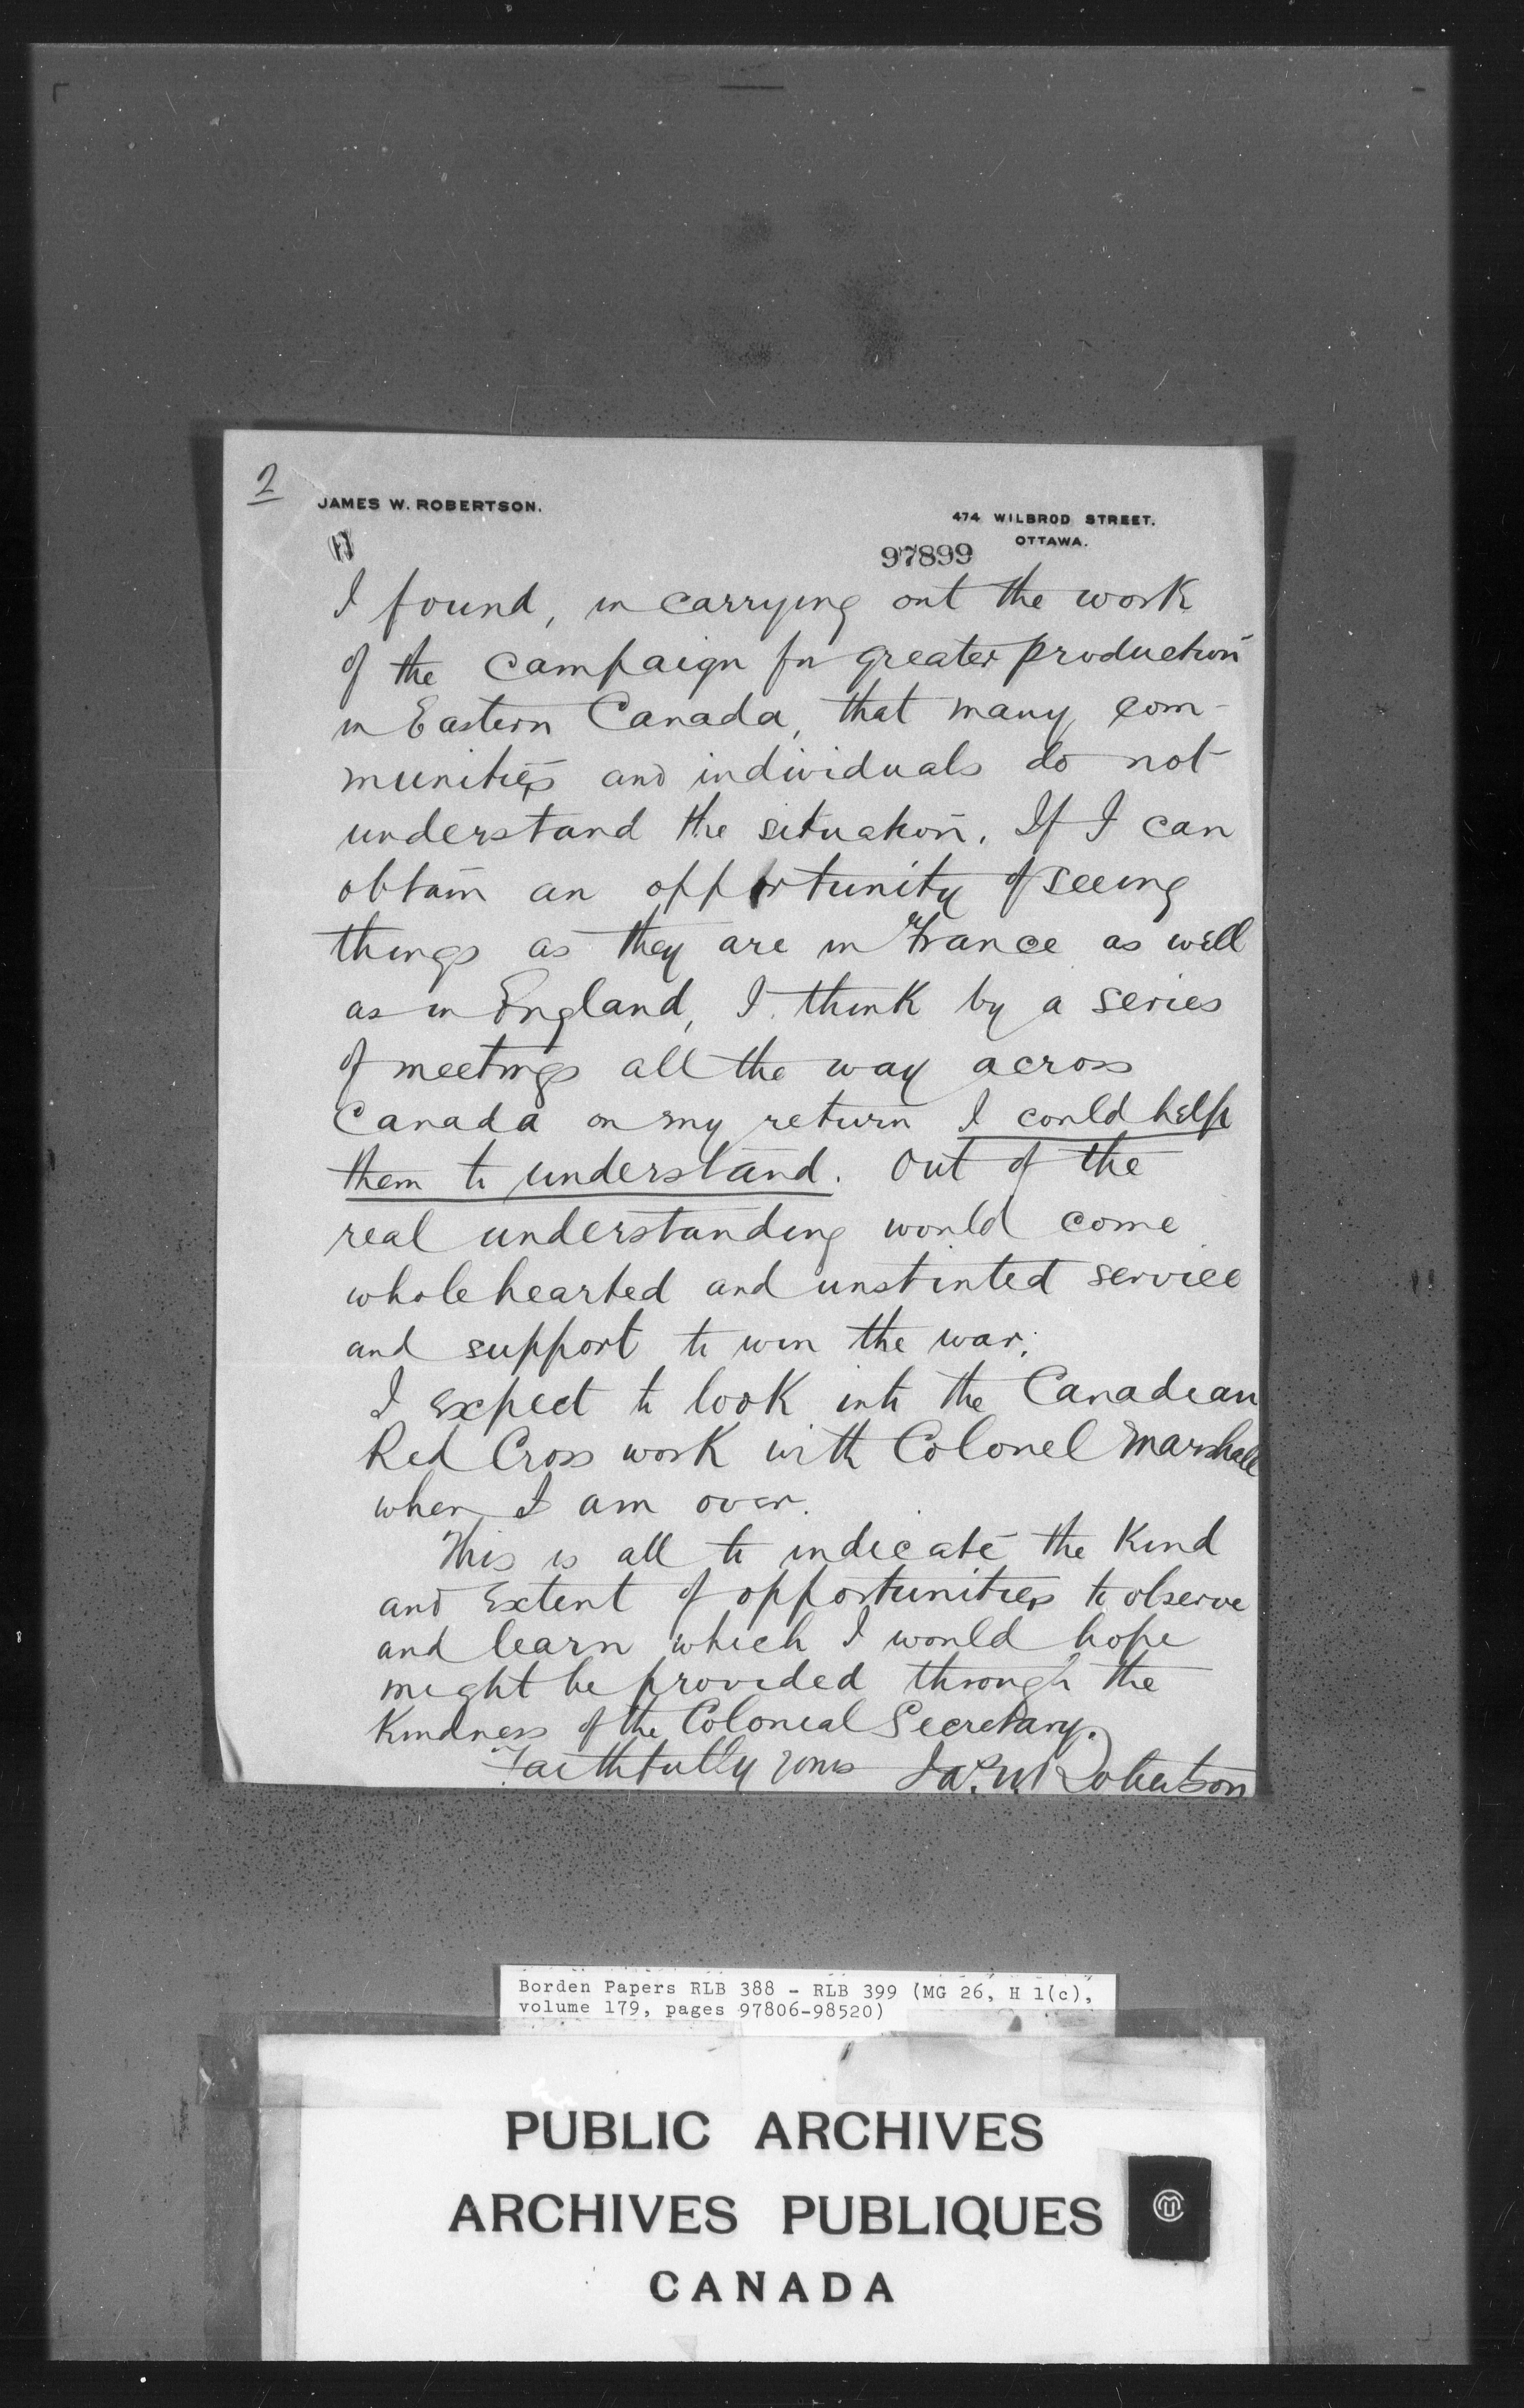 2
JAMES W. ROBERTSON.
474 WILBROD STREET.
OTTAWA.
97899
I found, in carrying out the work
of the campaign for greater production
in Eastern Canada, that many com-
munities and individuals do not
understand the situation. If I can
obtain an opportunity of seeing
things as they are in France as well
as in England, I think by a series
of meetings all the way across
Canada on my return I could help
them to understand. Out of the
real understanding would come
whole hearted and unstinted service
and support to win the war.
I expect to look into the Canadian
Red Cross work with Colonel Marshall
when I am over.
This is all to indicate the kind
and extent of opportunities to observe
and learn which I would hope
might be provided through the
kindness of the Colonial Secretary.
Faithfully yours Jas. W Robertson
Borden Papers RLB 388 - RLB 399 (MG 26, H 1(c),
volume 179, pages 97806-98520)
PUBLIC ARCHIVES
ARCHIVES PUBLIQUES
CANADA